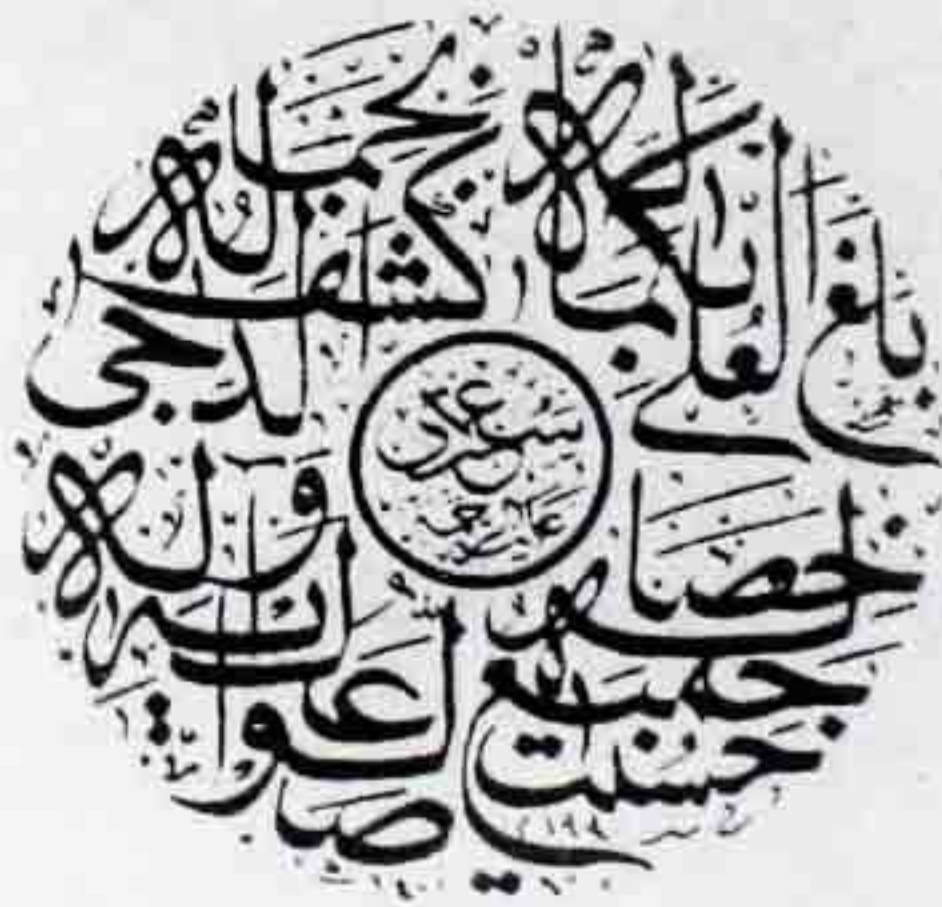 بلغ العلى بكماله
كشف الدجى بجماله
حسنت جميع خصاله
صلوا عليه وآله
سعدي